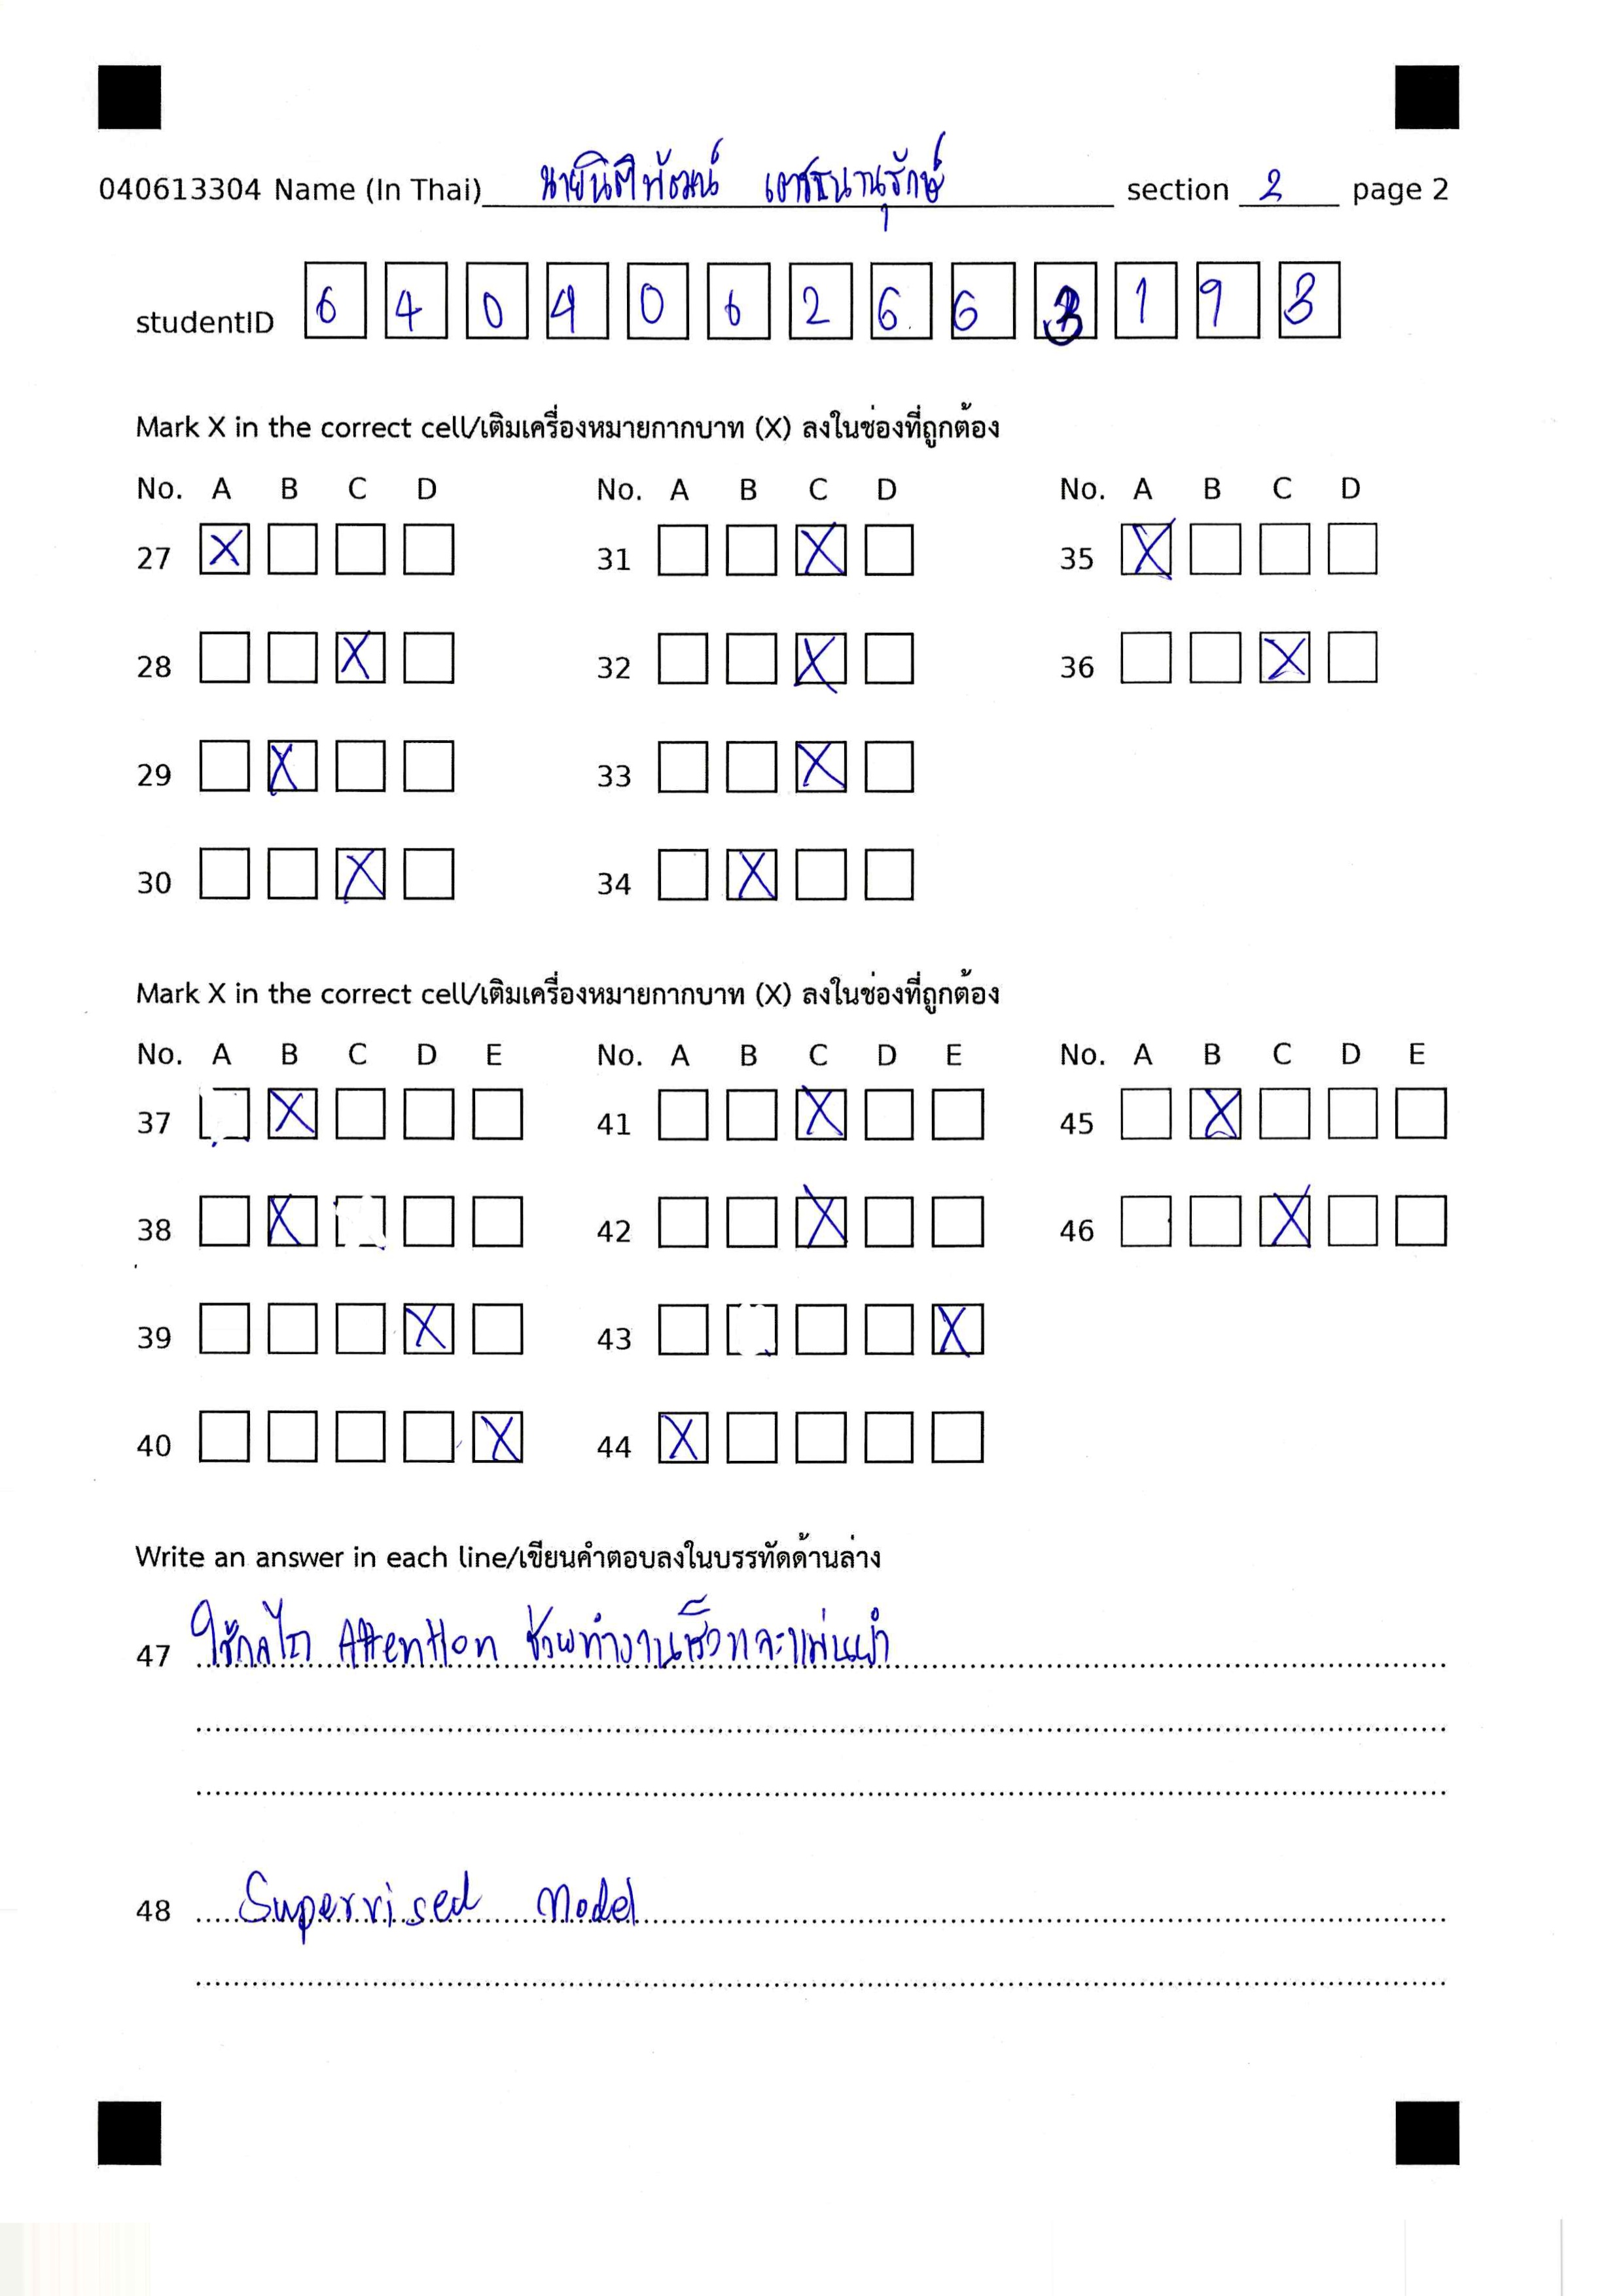 040613304 Name (In Thai) นายนิติพัฒน์ เตชธนานุรักษ์ section 2 page 2
studentID 6 4 0 4 0 6 2 6 6 3 1 9 3
Mark X in the correct cell/เติมเครื่องหมายกากบาท (X) ลงในช่องที่ถูกต้อง
No. A B C D No. A B C D No. A B C D
27 X 31 X 35 X
28 X 32 X 36 X
29 X 33 X
30 X 34 X
Mark X in the correct cell/เติมเครื่องหมายกากบาท (X) ลงในช่องที่ถูกต้อง
No. A B C D E No. A B C D E No. A B C D E
37 X 41 X 45 X
38 X 42 X 46 X
39 X 43 X
40 X 44 X
Write an answer in each line/เขียนคำตอบลงในบรรทัดด้านล่าง
47 ใช้กลไก Attention ช่วยทำงานเร็วและแม่นยำ
48 Supervised Model